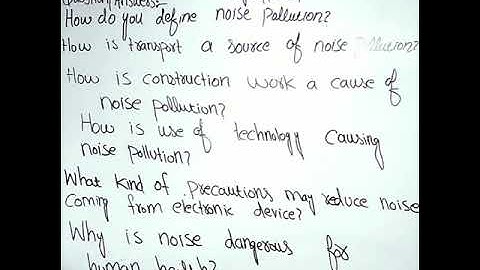 Question/Answers:-
How do you define noise Pollution?
How is transport a source of noise pollution?
How is construction work a cause of
noise pollution?
How is use of technology causing
noise pollution?
What kind of precautions may reduce noise
coming from electronic device?
Why is noise dangerous for
human health?